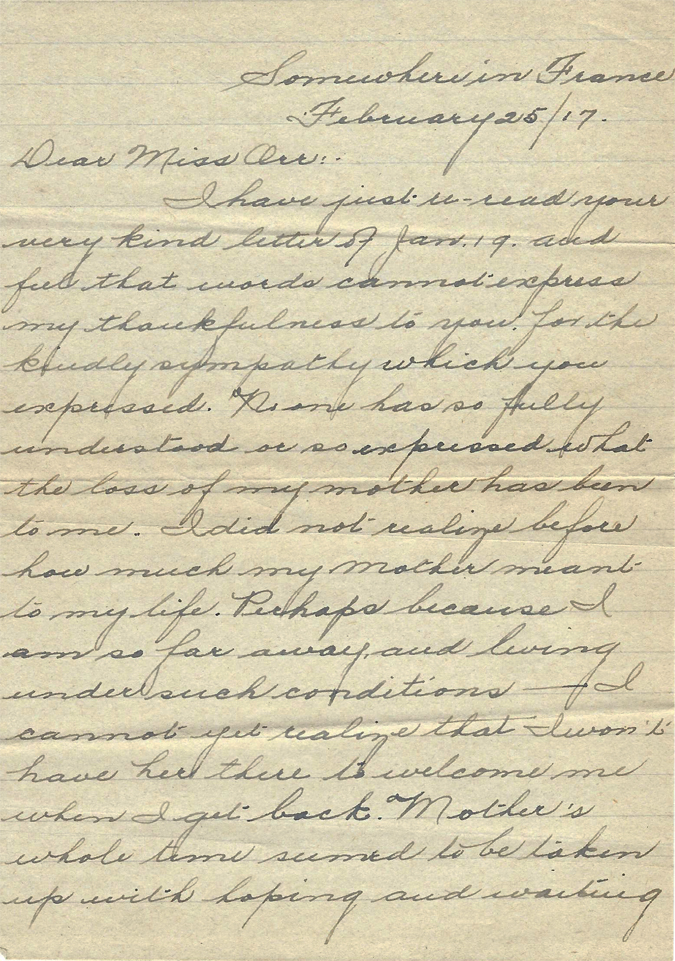 Somewhere in France
February 25/17.
Dear Miss Orr:-
I have just re-read your
very kind letter of Jan. 19. and
feel that words cannot express
my thankfulness to you for the
kindly sympathy which you
expressed. No one has so fully
understood or so expressed what
the loss of my mother has been
to me. I did not realize before
how much my Mother meant
to my life. Perhaps because I
am so far away, and living
under such conditions — I
cannot yet realize that I won't
have her there to welcome me
when I get back. Mother's
whole time seemed to be taken
up with hoping and waiting